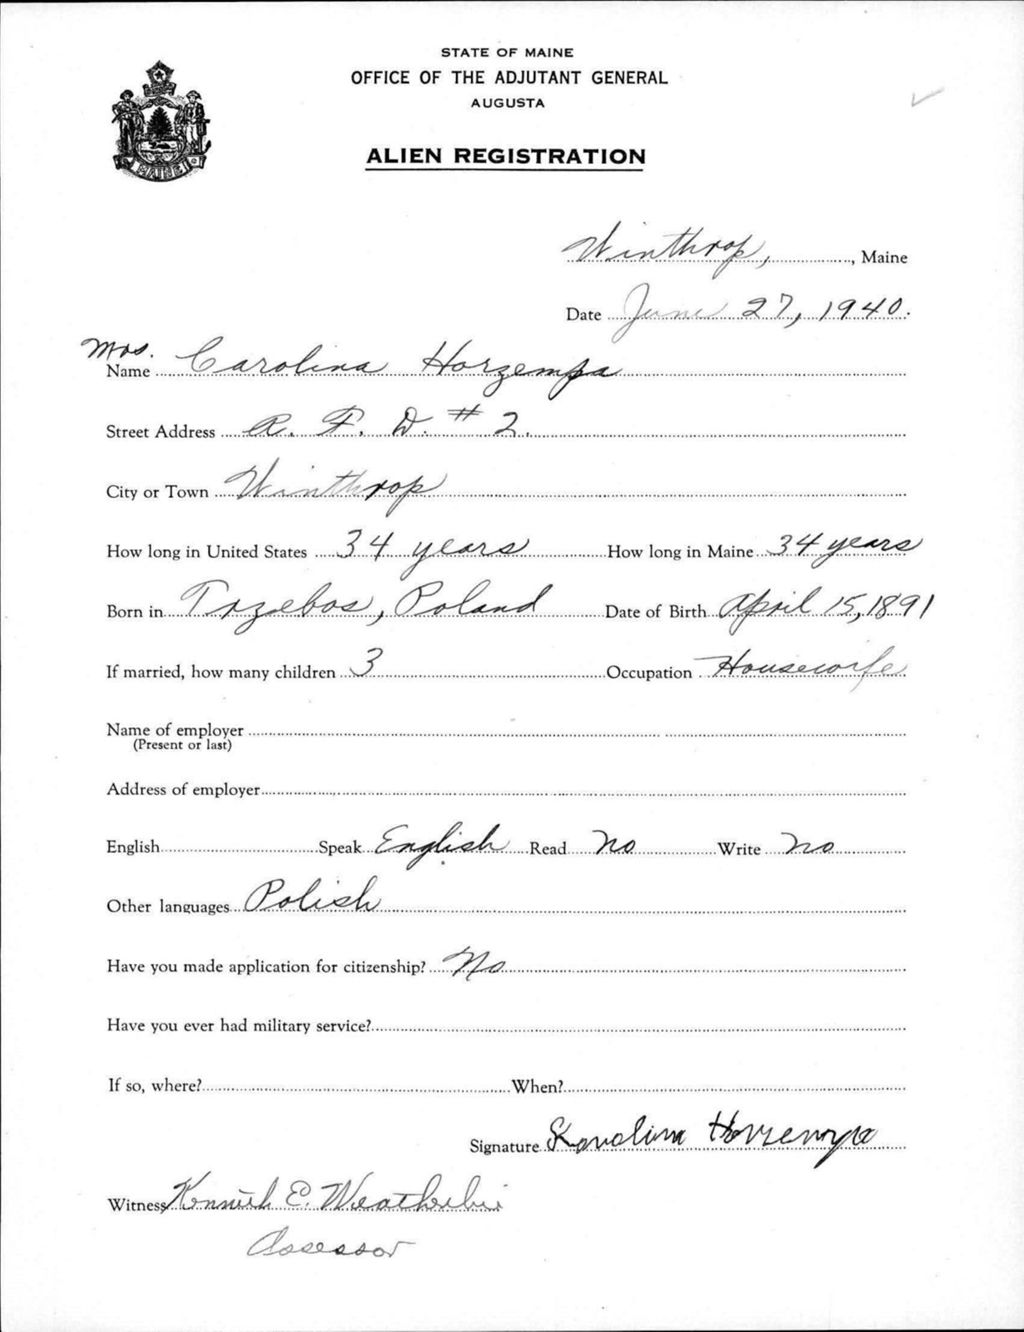 STATE OF MAINE
OFFICE OF THE ADJUTANT GENERAL
AUGUSTA
ALIEN REGISTRATION
MAINE
Winthrop, , Maine
Date June 27, 1940.
Mrs.
Name Carolina Horzempa
Street Address R. F. D. # 2.
City or Town Winthrop
How long in United States 34 years How long in Maine 34 years
Born in Trzebos, Poland Date of Birth April 15, 1891
If married, how many children 3 Occupation Housewife
Name of employer
(Present or last)
Address of employer
English Speak English Read No Write No
Other languages Polish
Have you made application for citizenship? No
Have you ever had military service?
If so, where? When?
Signature Karolina Horzempa
Witness Kenneth E. Weatherbee
Assessor